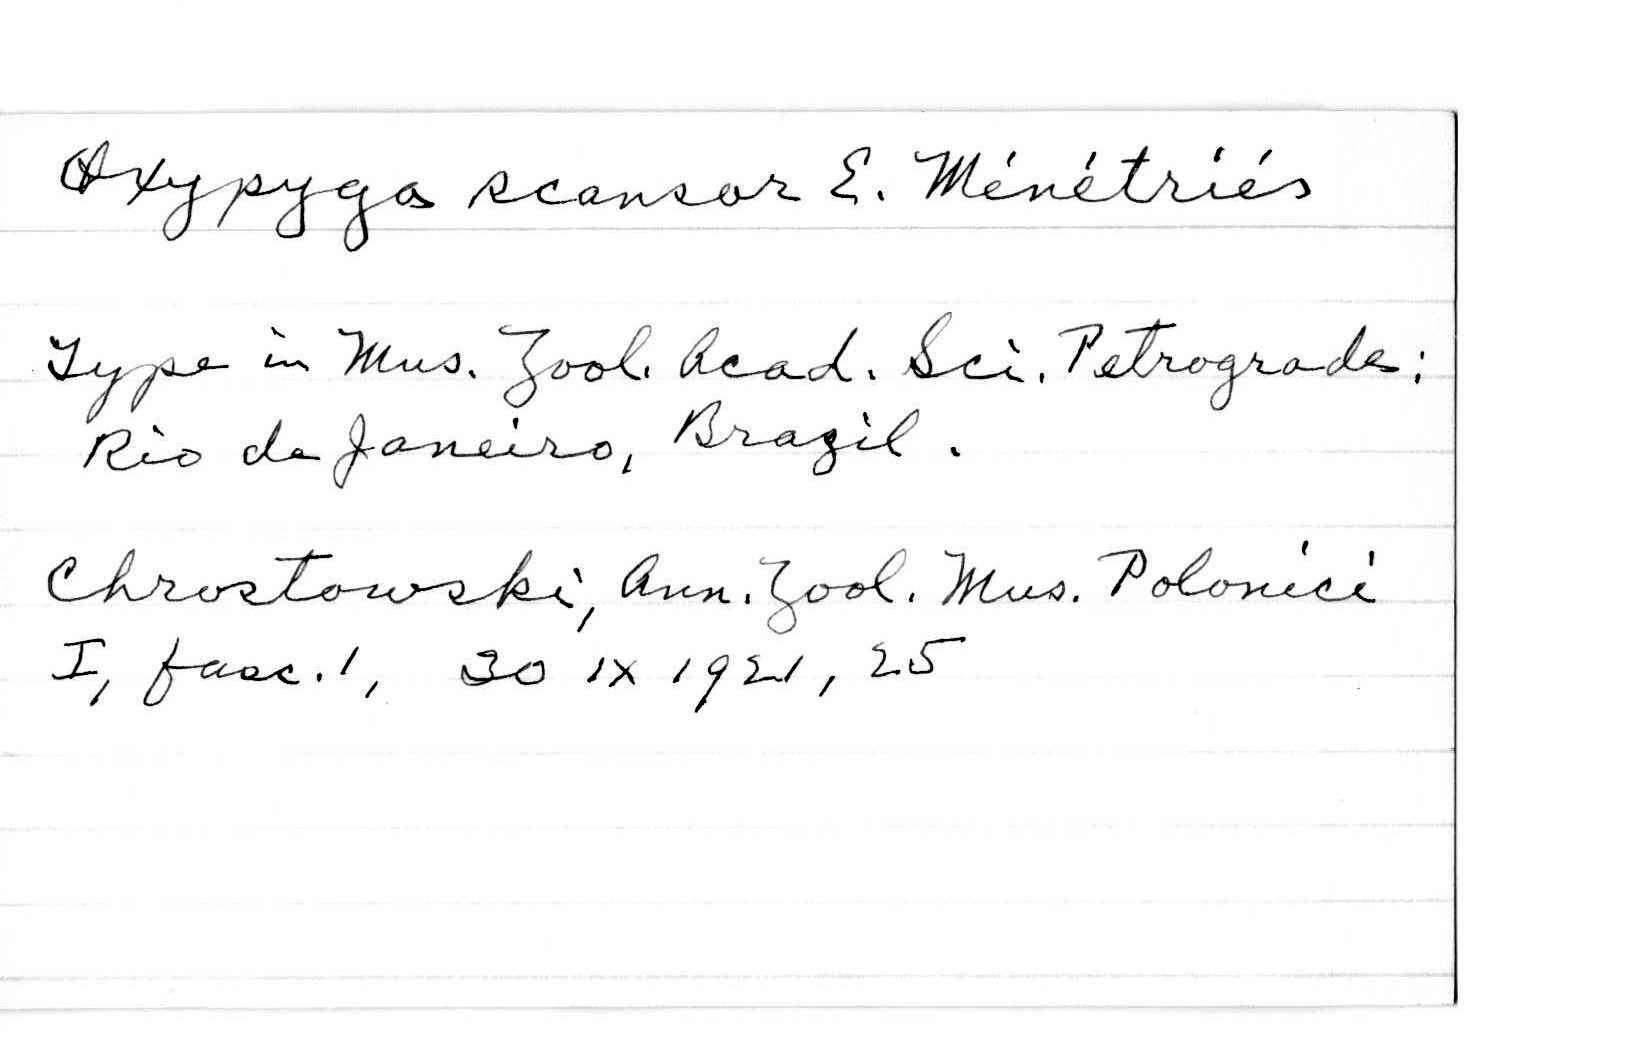 Oxypyga scansor E. Ménétriés
Type in Mus. Zool. Acad. Sci. Petrograde;
Rio de Janeiro, Brazil.
Chrostowski, Ann. Zool. Mus. Polonici
I, fasc. 1, 30 IX 1921, 25